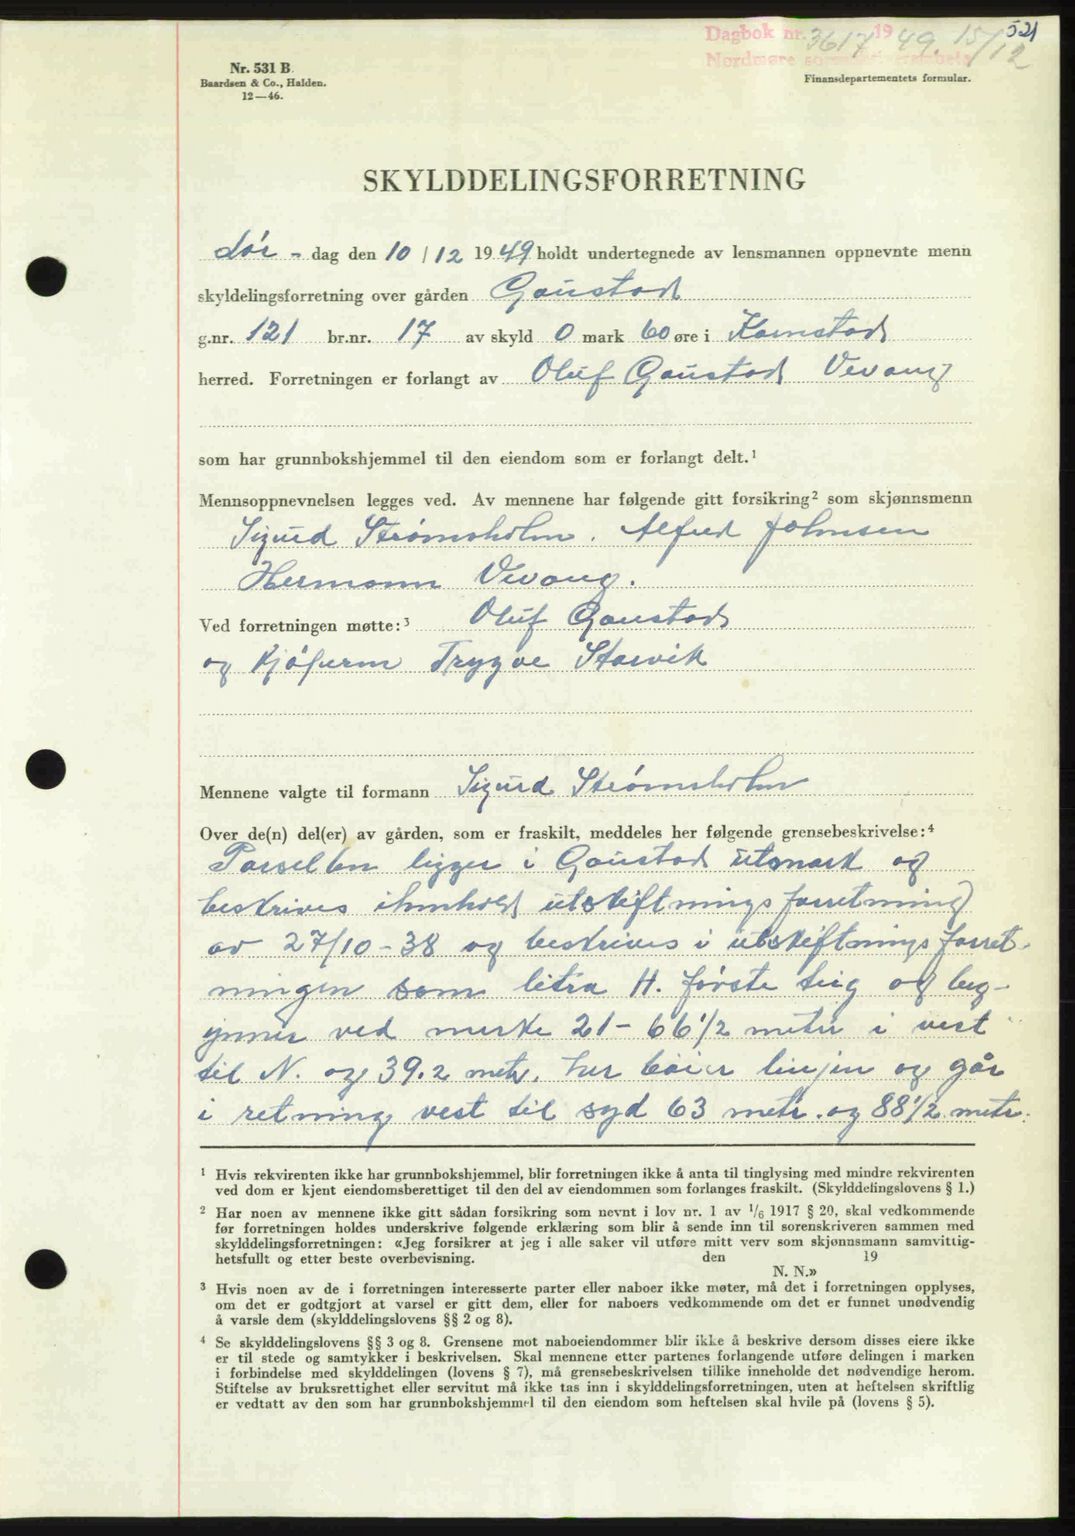 521
Dagbok nr. 3617 1949. 15/12
Nordmøre sorenskriverembete
Nr. 531 B
Baardsen & Co., Halden.
12—46.
Finansdepartementets formular.
SKYLDDELINGSFORRETNING
Lør - dag den 10 / 12 1949 holdt undertegnede av lensmannen oppnevnte menn
skyldelingsforretning over gården Gaustad
g.nr. 121 br.nr. 17 av skyld 0 mark 60 øre i Kornstad
herred. Forretningen er forlangt av Oluf Gaustad Vevang
som har grunnbokshjemmel til den eiendom som er forlangt delt.¹
Mennsoppnevnelsen legges ved. Av mennene har følgende gitt forsikring² som skjønnsmenn
Sigurd Strømsholm. Alfred Johnsen
Hermann Vevang.
Ved forretningen møtte:³ Oluf Gaustad
og Kjøperen Trygve Storvik
Mennene valgte til formann Sigurd Strømsholm
Over de(n) del(er) av gården, som er fraskilt, meddeles her følgende grensebeskrivelse:⁴
Parsellen ligger i Gaustad utsmark og
beskrives ihenhold utskiftningsforretning
av 27/10-38 og beskrives i utskiftningsforret-
ningen som litra H. første teig og beg-
ynner ved merke 21 - 66 1/2 meter i vest
til N. og 39.2 metr. her bøier linjen og går
i retning vest til syd 63 metr. og 88 1/2 metr.
¹ Hvis rekvirenten ikke har grunnbokshjemmel, blir forretningen ikke å anta til tinglysing med mindre rekvirenten
ved dom er kjent eiendomsberettiget til den del av eiendommen som forlanges fraskilt. (Skylddelingslovens § 1.)
² Har noen av mennene ikke gitt sådan forsikring som nevnt i lov nr. 1 av 1/6 1917 § 20, skal vedkommende
før forretningen holdes underskrive følgende erklæring som blir å sende inn til sorenskriveren sammen med
skylddelingsforretningen: «Jeg forsikrer at jeg i alle saker vil utføre mitt verv som skjønnsmann samvittig-
hetsfullt og etter beste overbevisning. den 19
N. N.»
³ Hvis noen av de i forretningen interesserte parter eller naboer ikke møter, må det i forretningen opplyses,
om det er godtgjort at varsel er gitt dem, eller for naboers vedkommende om det er funnet unødvendig
å varsle dem (skylddelingslovens §§ 2 og 8).
⁴ Se skylddelingslovens §§ 3 og 8. Grensene mot naboeiendommer blir ikke å beskrive dersom disses eiere ikke
er til stede og samtykker i beskrivelsen. Skal mennene etter partenes forlangende utføre delingen i marken
i forbindelse med skylddelingen (lovens § 7), må grensebeskrivelsen tillike inneholde det nødvendige herom.
Stiftelse av bruksrettighet eller servitut må ikke tas inn i skylddelingsforretningen, uten at heftelsen skriftlig
er vedtatt av den som har grunnbokshjemmel til den eiendom som heftelsen skal hvile på (lovens § 5).